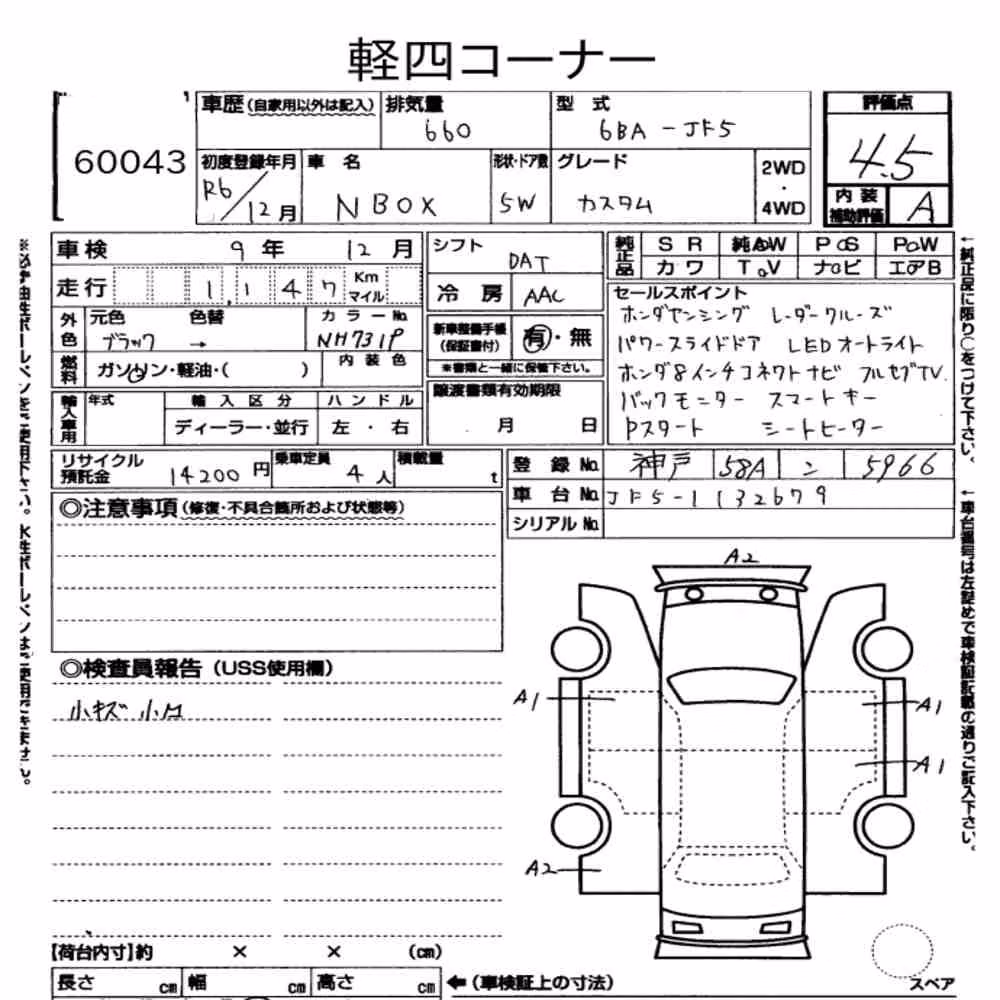 軽四コーナー
60043
車歴(自家用以外は記入) 排気量 660 型式 6BA-JF5 評価点 4.5
初度登録年月 R6/12月 車名 NBOX 形状・ドア数 5W グレード カスタム 2WD・4WD 内装補助評価 A
車検 9年 12月 シフト DAT 純正品 SR 純AW PS PW
カワ TV ナビ エアB
走行 1,147 Kmマイル 冷房 AAC
外色 元色 ブラック 色替 → カラーNo. NH731P
新車整備手帳(保証書付) 有・無
※書類と一緒に保管下さい。
燃料 ガソリン・軽油・( ) 内装色
セールスポイント
ホンダセンシング レーダークルーズ
パワースライドドア LEDオートライト
ホンダ8インチコネクトナビ フルセグTV.
バックモニター スマートキー
Pスタート シートヒーター
輸入車用 年式 輸入区分 ハンドル
ディーラー・並行 左・右
譲渡書類有効期限
月 日
リサイクル預託金 14200円 乗車定員 4人 積載量 t
登録No. 神戸 58A 5966
車台No. JF5-1132679
シリアルNo.
◎注意事項(修復・不具合箇所および状態等)
◎検査員報告(USS使用欄)
小キズ 小凹
A2
A1
A1
A1
A2
【荷台内寸】約 × × (cm)
長さ cm 幅 cm 高さ cm ←(車検証上の寸法)
スペア
←純正品に限り○をつけて下さい。
←車台番号は左詰めで車検証記載の通りご記入下さい。